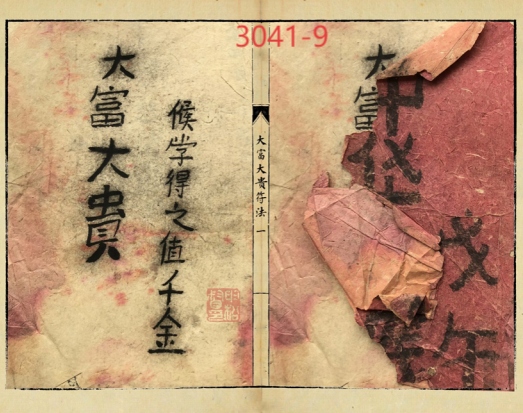 3041-9
戊午
大富
大富大貴符法 一
候学得之值千金
大富大貴